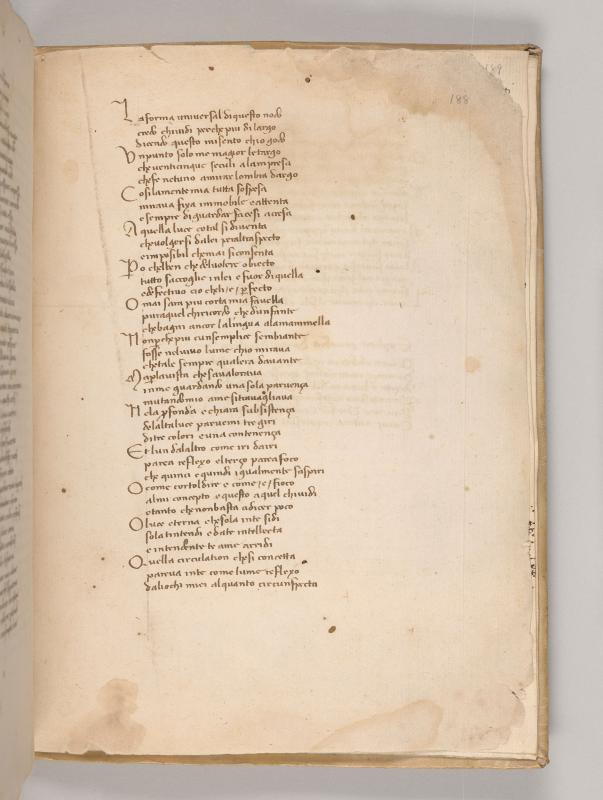 189
188
La forma universal di questo nodo
credo chi vidi perche piu di largo
dicendo questo mi sento chio godo
Un punto solo me maggior letargo
che venticinque seculi a la impresa
che fe netuno amirar lombra dargo
Cosi la mente mia tutta sospesa
mirava fixa immobile e attenta
e sempre di guardar facesi acesa
A quella luce cotal si diventa
che volgersi da lei per altraspecto
e imposibil che mai si consenta
Po chel ben che del volere obiecto
tutto saccoglie in lei e fuor di quella
e defectivo cio cheli /e/ perfecto
Omai sara piu corta mia favella
pur a quel chi ricordo che dun fante
che bagni ancor la lingua a la mammella
Non perche piu cun semplice sembiante
fosse nel vivo lume chio mirava
che tale sempre qual era davante
Ma per la vista che savalorava
in me guardando una sola parvença
mutandomio a me si travagliava
Ne la profonda e chiara subsistença
de lalta luce parvemi tre giri
di tre colori e una contenença
Et lun da laltro come iri da iri
parea reflexo el terço parea foco
che quinci e quindi igualmente si spiri
O come corto l dire e come /e/ fioco
al mi concepto e questo a quel chi vidi
e tanto che non basta a dicer poco
O luce eterna che sola in te sidi
sola tintendi e da te intellecta
e intendente te ame arridi
Quella circulation che si concetta
pareva in te come lume reflexo
da li ochi miei alquanto circunspecta